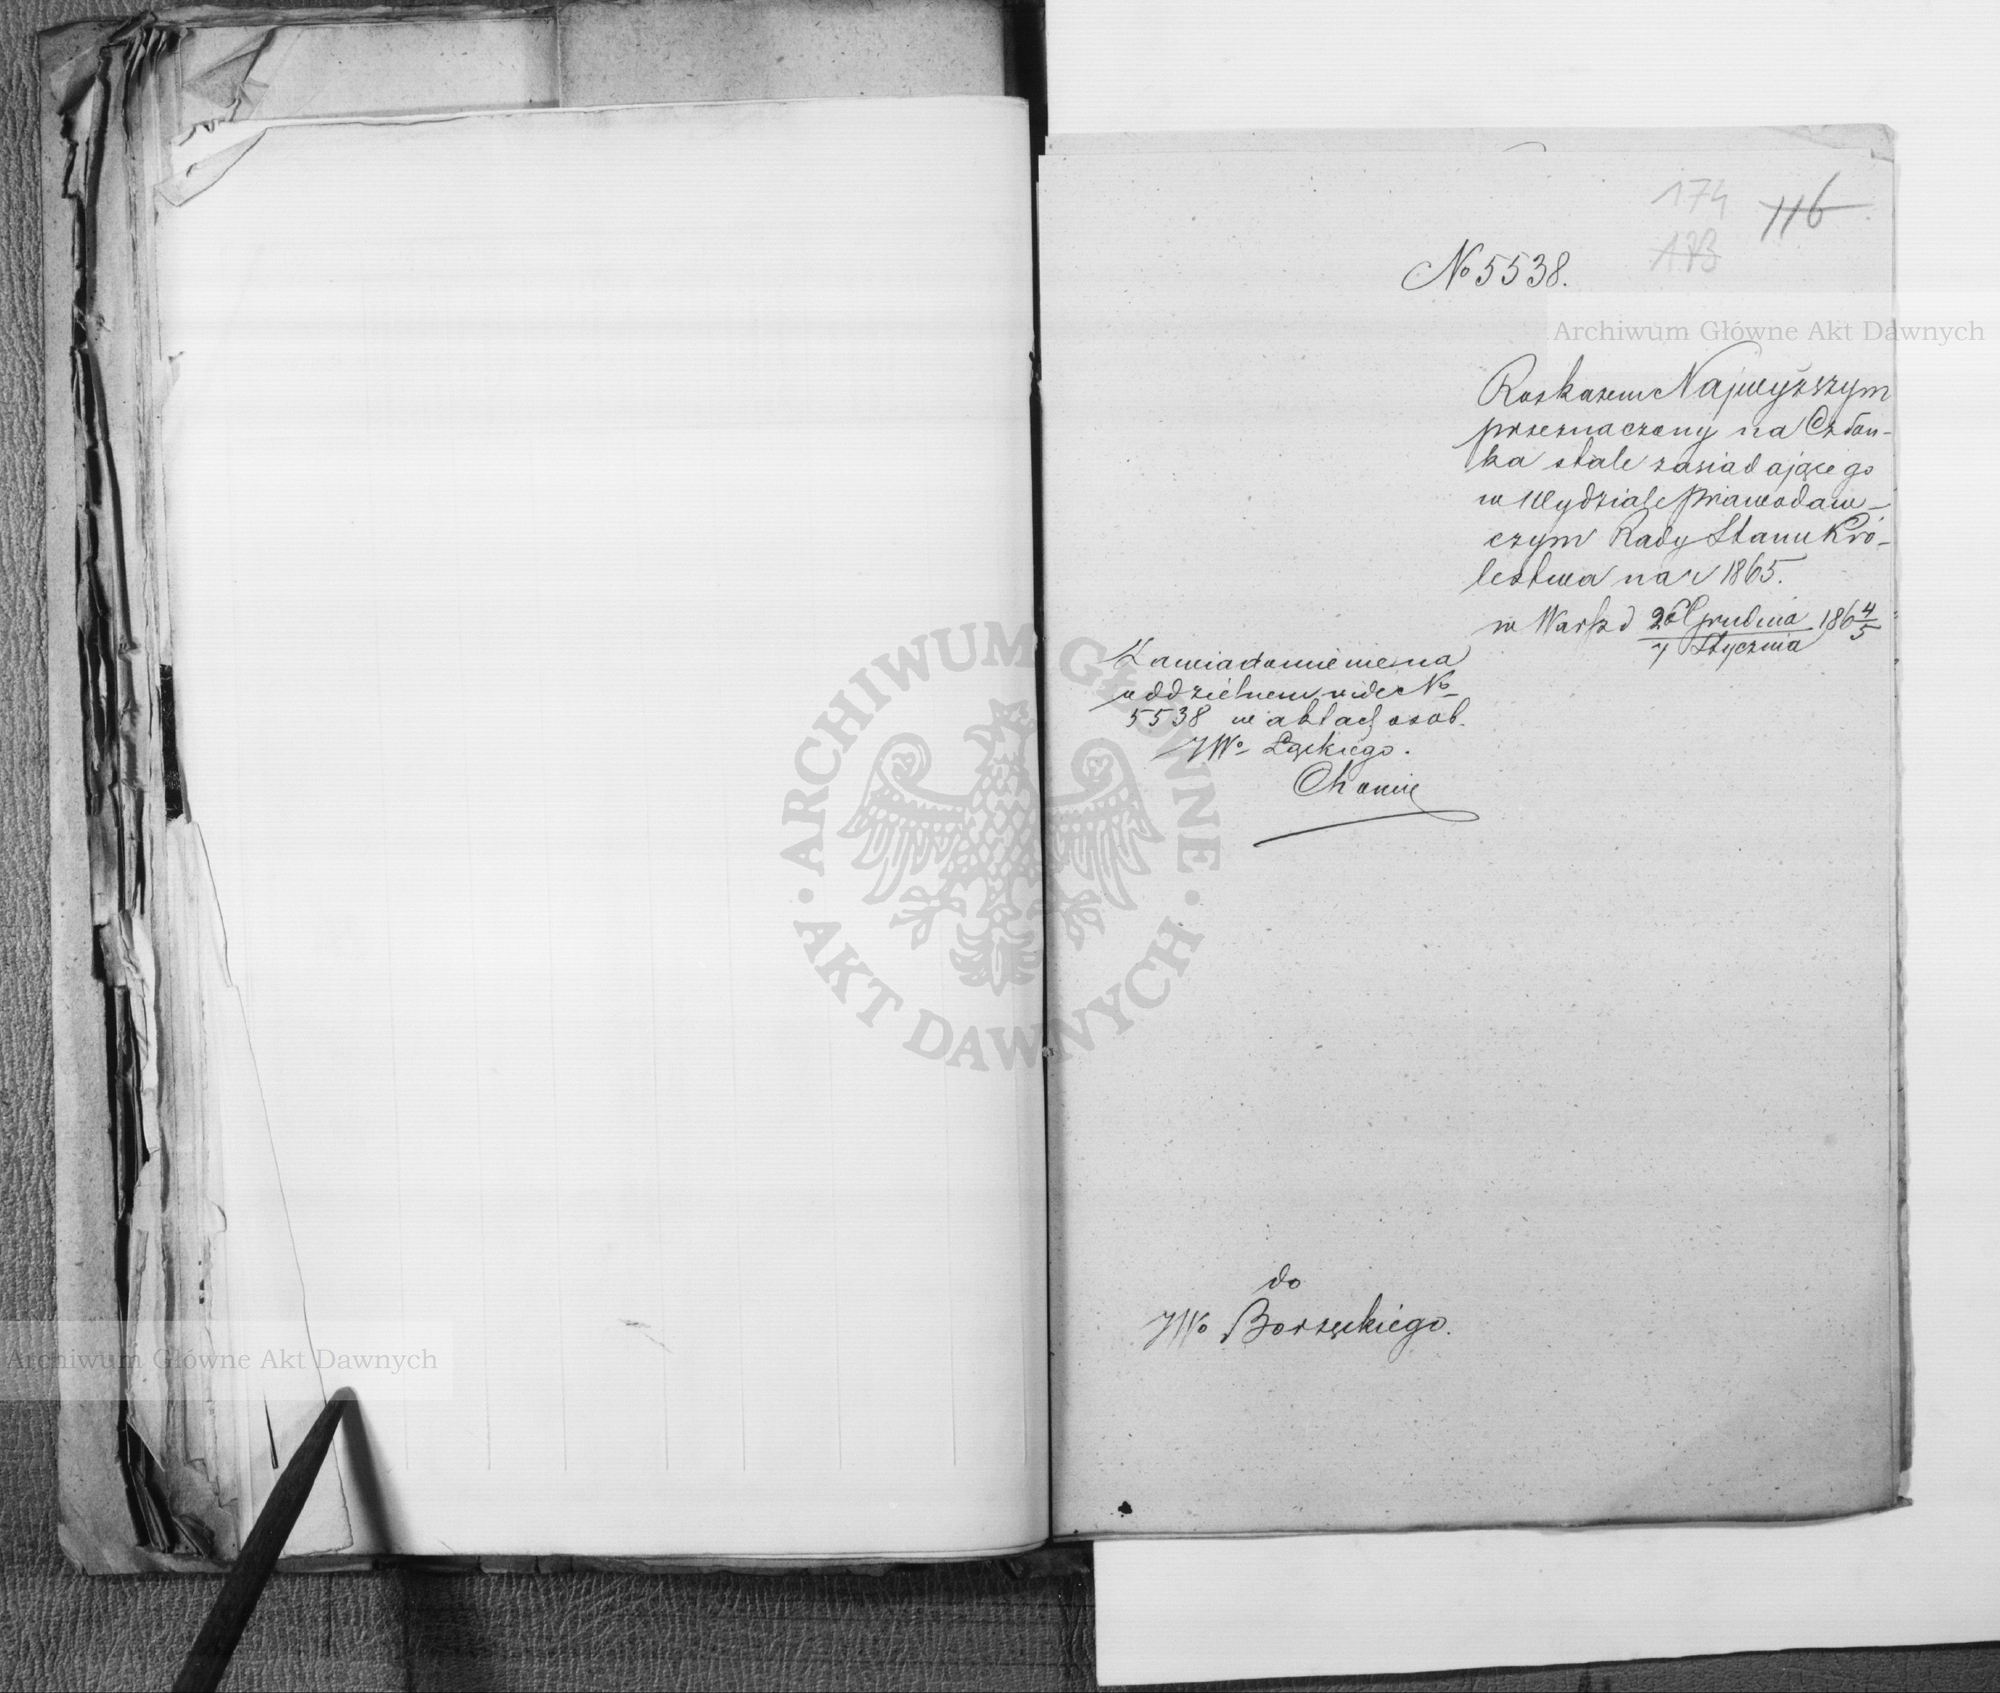 174
116
173
No 5538.
Archiwum Główne Akt Dawnych
Roskazem Najwyższym
przeznaczony na Człon-
ka stale zasiadającego
w Wydziale Prawodaw-
czym Rady Stanu Kró-
lestwa na r 1865.
w Warsz d 26 Grudnia 1864/5
7 Stycznia
Zawiadomienie na
oddzielnem vide No
5538 w aktach osob.
JWo Łąckiego.
do
JWo Borzęckiego.
ARCHIWUM GŁÓWNE
AKT DAWNYCH
Archiwum Główne Akt Dawnych